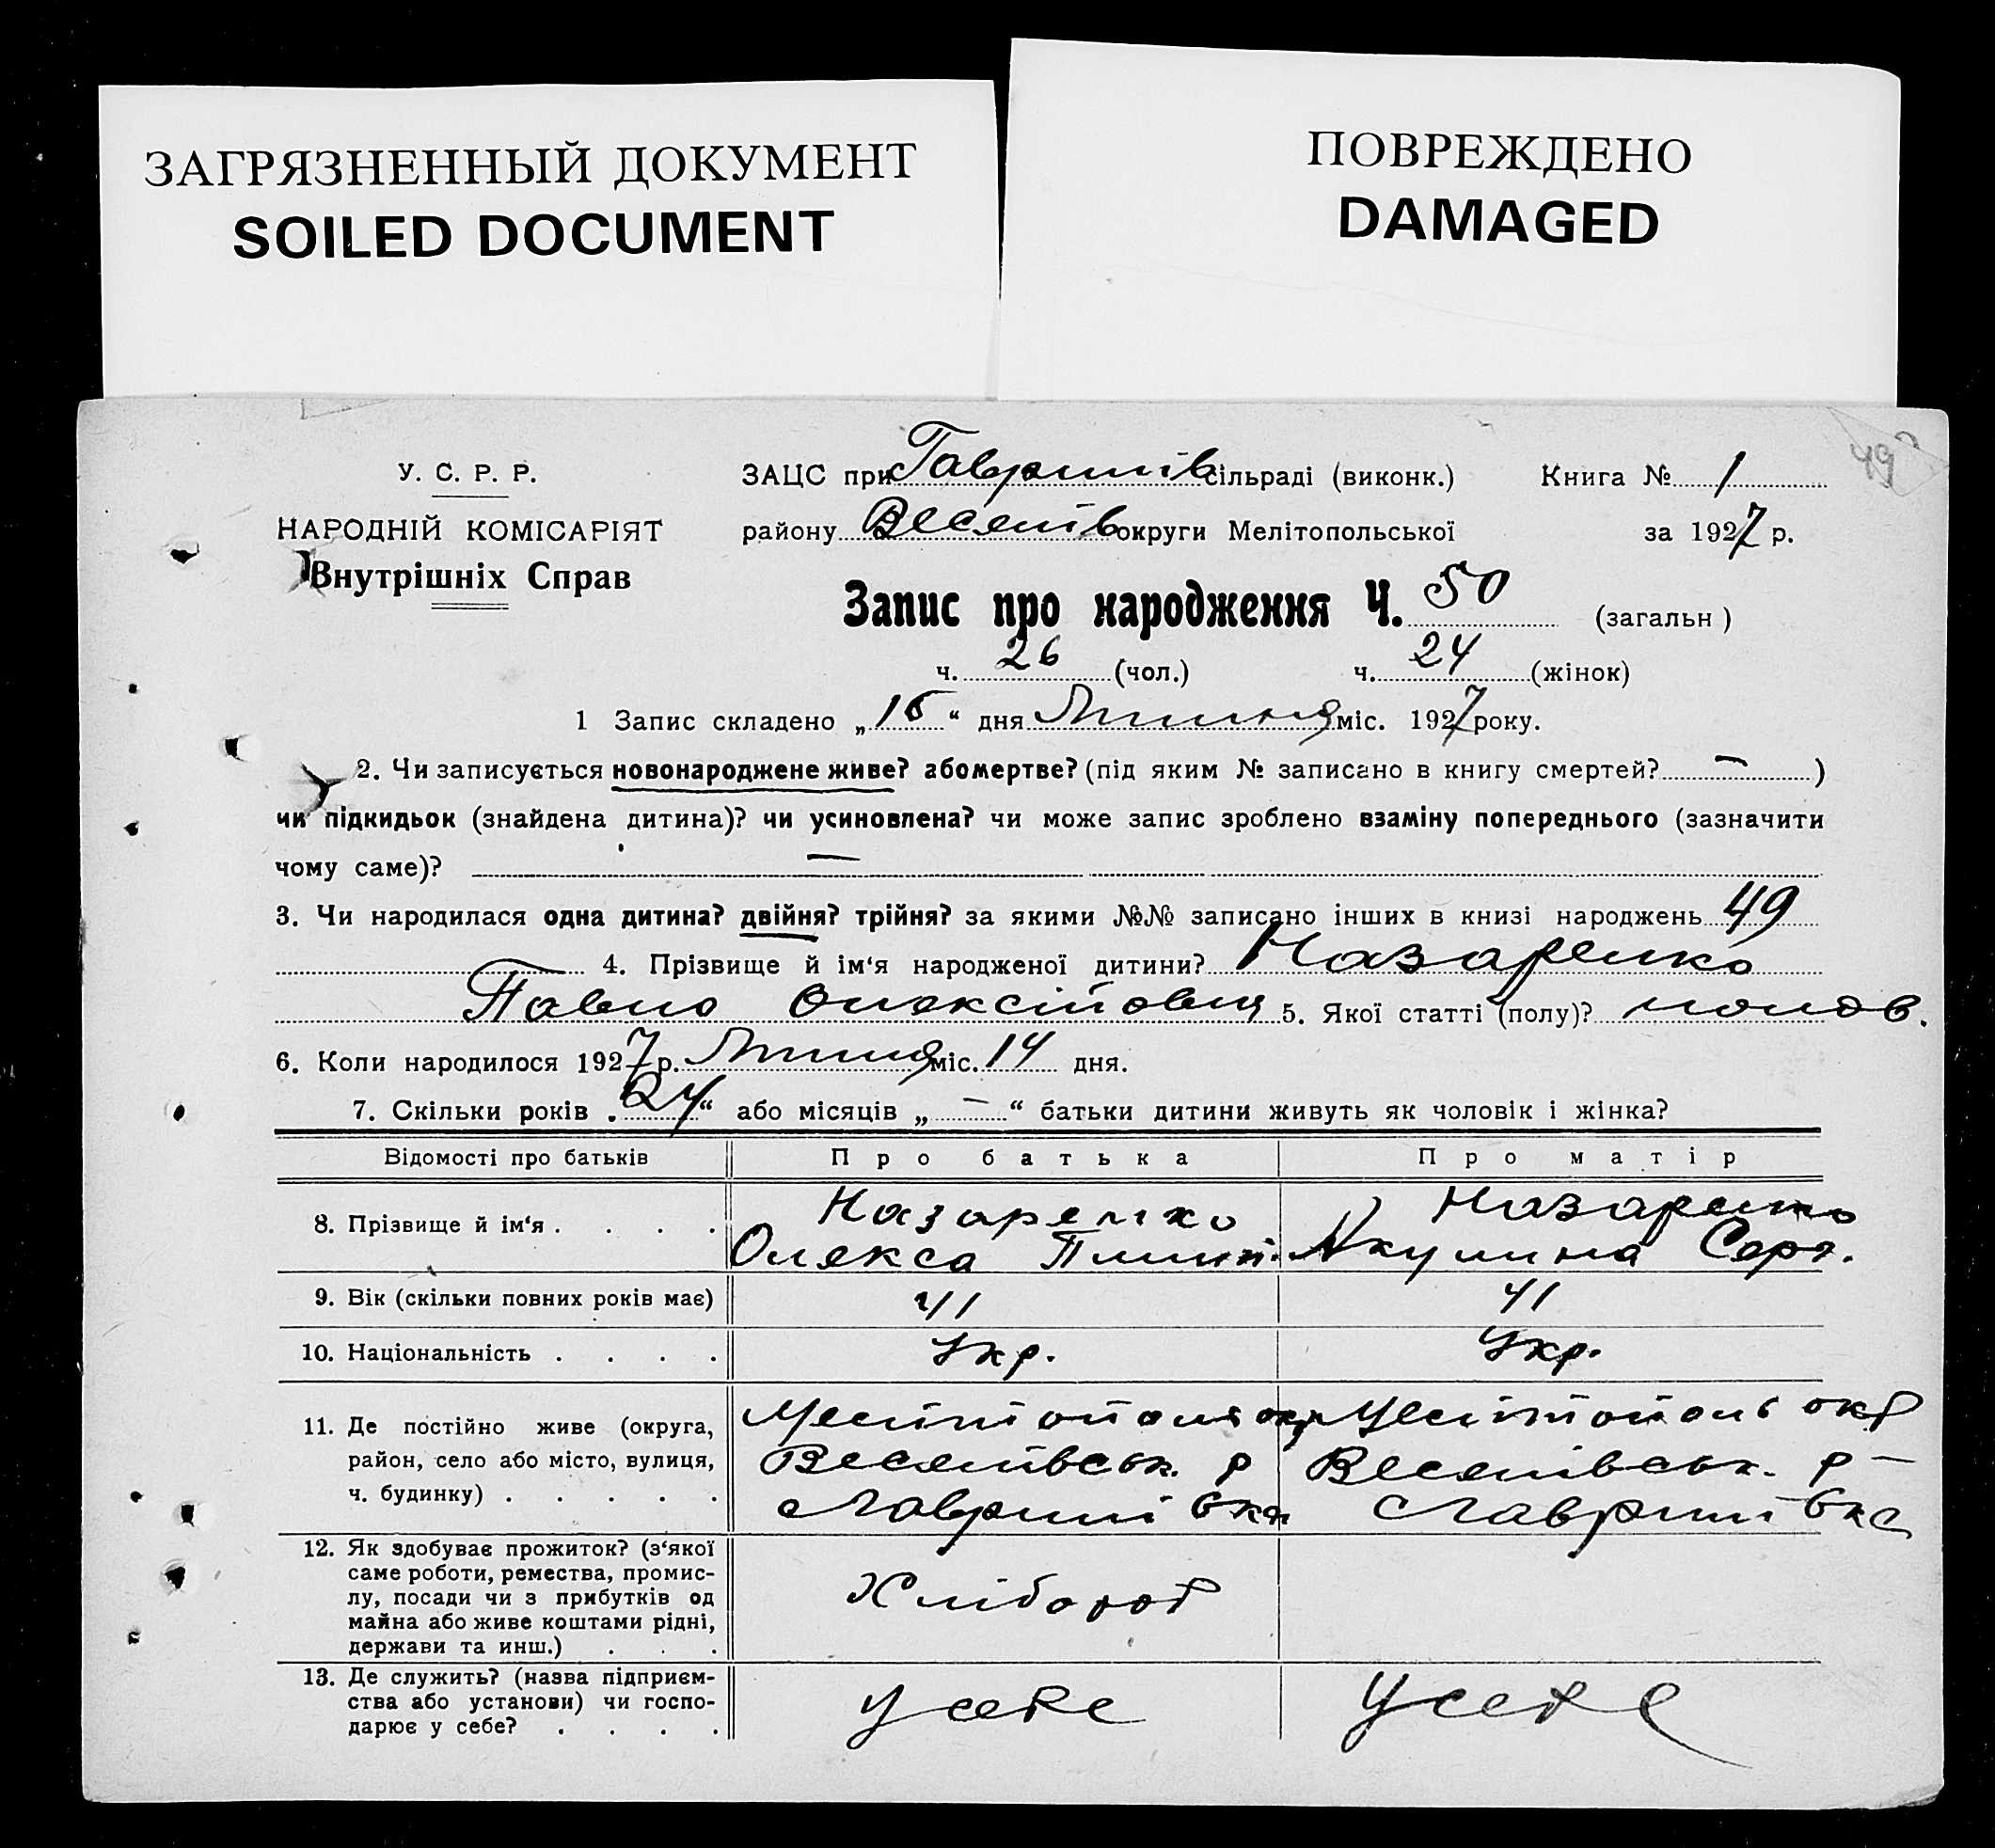 ЗАГРЯЗНЕННЫЙ ДОКУМЕНТ
SOILED DOCUMENT
ПОВРЕЖДЕНО
DAMAGED
49
У. С. Р. Р.
НАРОДНІЙ КОМІСАРІЯТ
Внутрішніх Справ
ЗАЦС при Гаврилів сільраді (виконк.) Книга № 1
району Веселів округи Мелітопольської за 1927 р.
Запис про народження Ч. 50 (загальн)
ч. 26 (чол.) ч. 24 (жінок)
1 Запис складено „15“ дня Липня міс. 1927 року.
2. Чи записується новонароджене живе? або мертве? (під яким № записано в книгу смертей? — )
чи підкидьок (знайдена дитина)? чи усиновлена? чи може запис зроблено взаміну попереднього (зазначити
чому саме)? —
3. Чи народилася одна дитина? двійня? трійня? за якими №№ записано інших в книзі народжень 49
4. Прізвище й ім‘я народженої дитини? Назаренко
Павло Олексійович 5. Якої статті (полу)? чолов.
6. Коли народилося 1927 р. Липня міс. 14 дня.
7. Скільки років „24“ або місяців „—“ батьки дитини живуть як чоловік і жінка?
Відомості про батьків Про батька Про матір
8. Прізвище й ім‘я . . . . Назаренко Назаренко
Олекса Акулина
9. Вік (скільки повних років має) 41 41
10. Національність . . . . Укр. Укр.
11. Де постійно живе (округа, Мелітополь окр Мелітополь окр
район, село або місто, вулиця, Веселівськ. р Веселівськ. р —
ч. будинку) . . . . .
12. Як здобуває прожиток? (з‘якої
саме роботи, ремества, промис-
лу, посади чи з прибутків од Хлібороб
майна або живе коштами рідні,
держави та инш.) . . .
13. Де служить? (назва підприєм-
ства або установи) чи госпо- У себе У себе
дарює у себе? . . . .